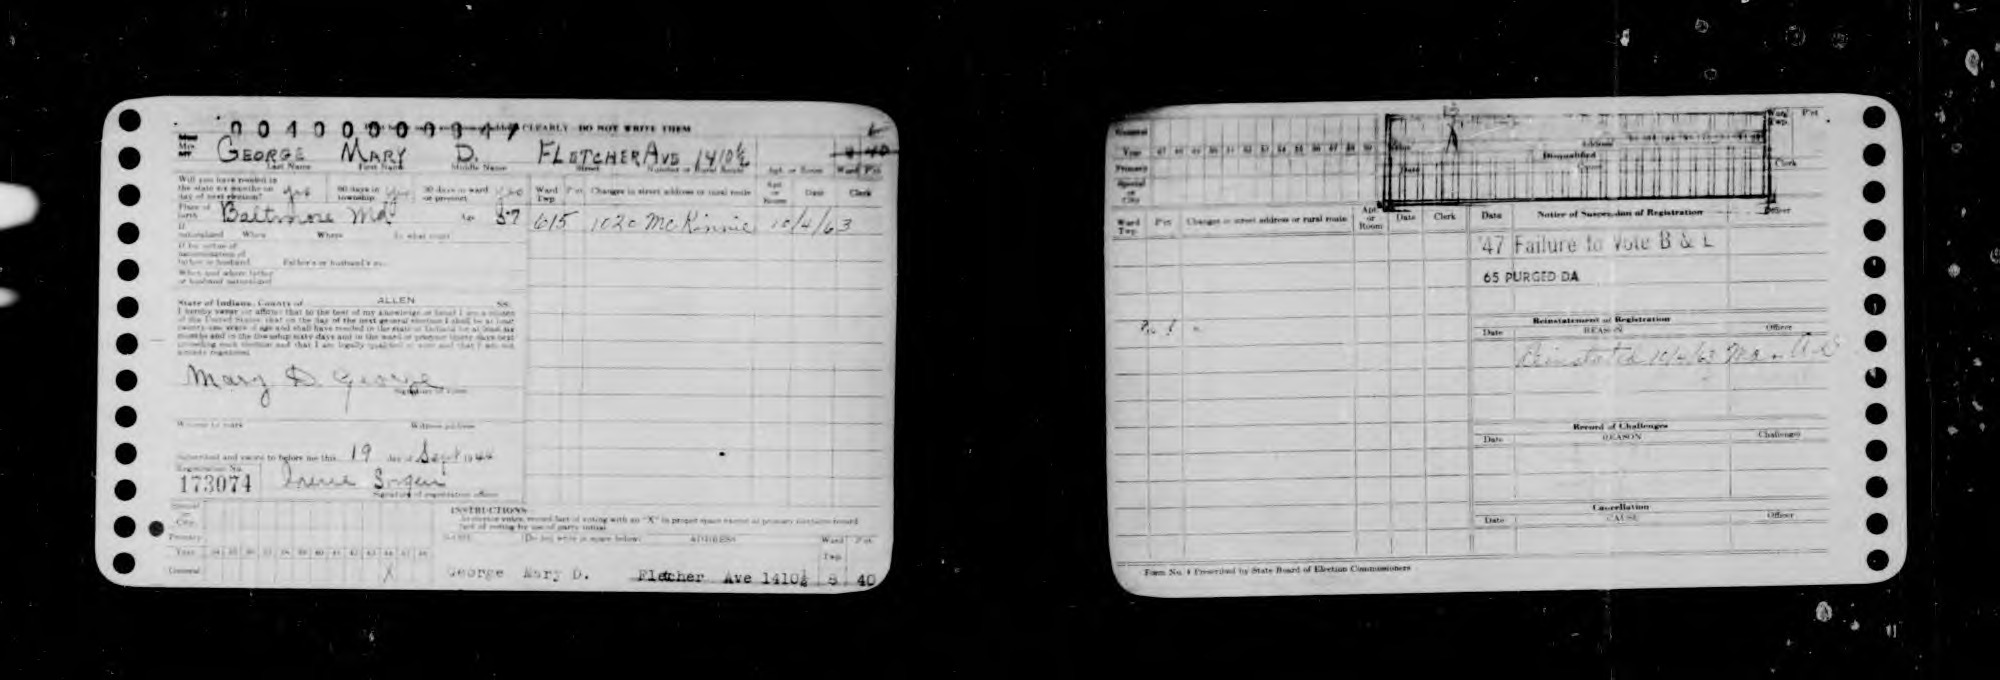 00400000347 CLEARLY - DO NOT WRITE THEM
GEORGE MARY D. FLETCHER AVE 1410½ 8 40
Last Name First Name Middle Name Street Number or Rural Route Apt. or Room Ward Pct
Will you have resided in
the state six months on
day of next election? yes 60 days in township yes 30 days in ward or precinct yes
Place of birth Baltimore Md Age 57
Ward Twp. Pct Changes in street address or rural route Apt. or Room Date Clerk
615 1020 McKinnie 10/4/63
If naturalized When Where In what court
If by virtue of
naturalization of
father or husband Father's or husband's
When and where father
or husband naturalized
State of Indiana, County of ALLEN SS:
I hereby swear or affirm that to the best of my knowledge or belief I am a citizen
of the United States; that on the day of the next general election I shall be at least
twenty-one years of age and shall have resided in the state of Indiana for at least six
months and in the township sixty days and in the ward or precinct thirty days next
preceding such election and that I am legally qualified to vote and that I am not
already registered.
Mary D. George
Signature of voter
Witness to mark Witness address
Subscribed and sworn to before me this 19 day of Sept 1944
Registration No.
173074
Signature of registration officer
INSTRUCTIONS
City
Primary
Year
General X
ADDRESS Ward Twp. Pct
George Mary D. Fletcher Ave 1410½ 8 40
General
Year 47 48 49 50 51 52 53 54 55 56 57 58 59
Primary
Special or City
Disqualified
Ward Twp. Pct
Clerk
Ward Twp. Pct Changes in street address or rural route Apt. or Room Date Clerk
Date Notice of Suspension of Registration Officer
'47 Failure to Vote B & L
65 PURGED DA
Reinstatement of Registration
Date REASON Officer
Reinstated 10/4/63
Record of Challenges
Date REASON Challenger
Cancellation
Date CAUSE Officer
Form No. 4 Prescribed by State Board of Election Commissioners